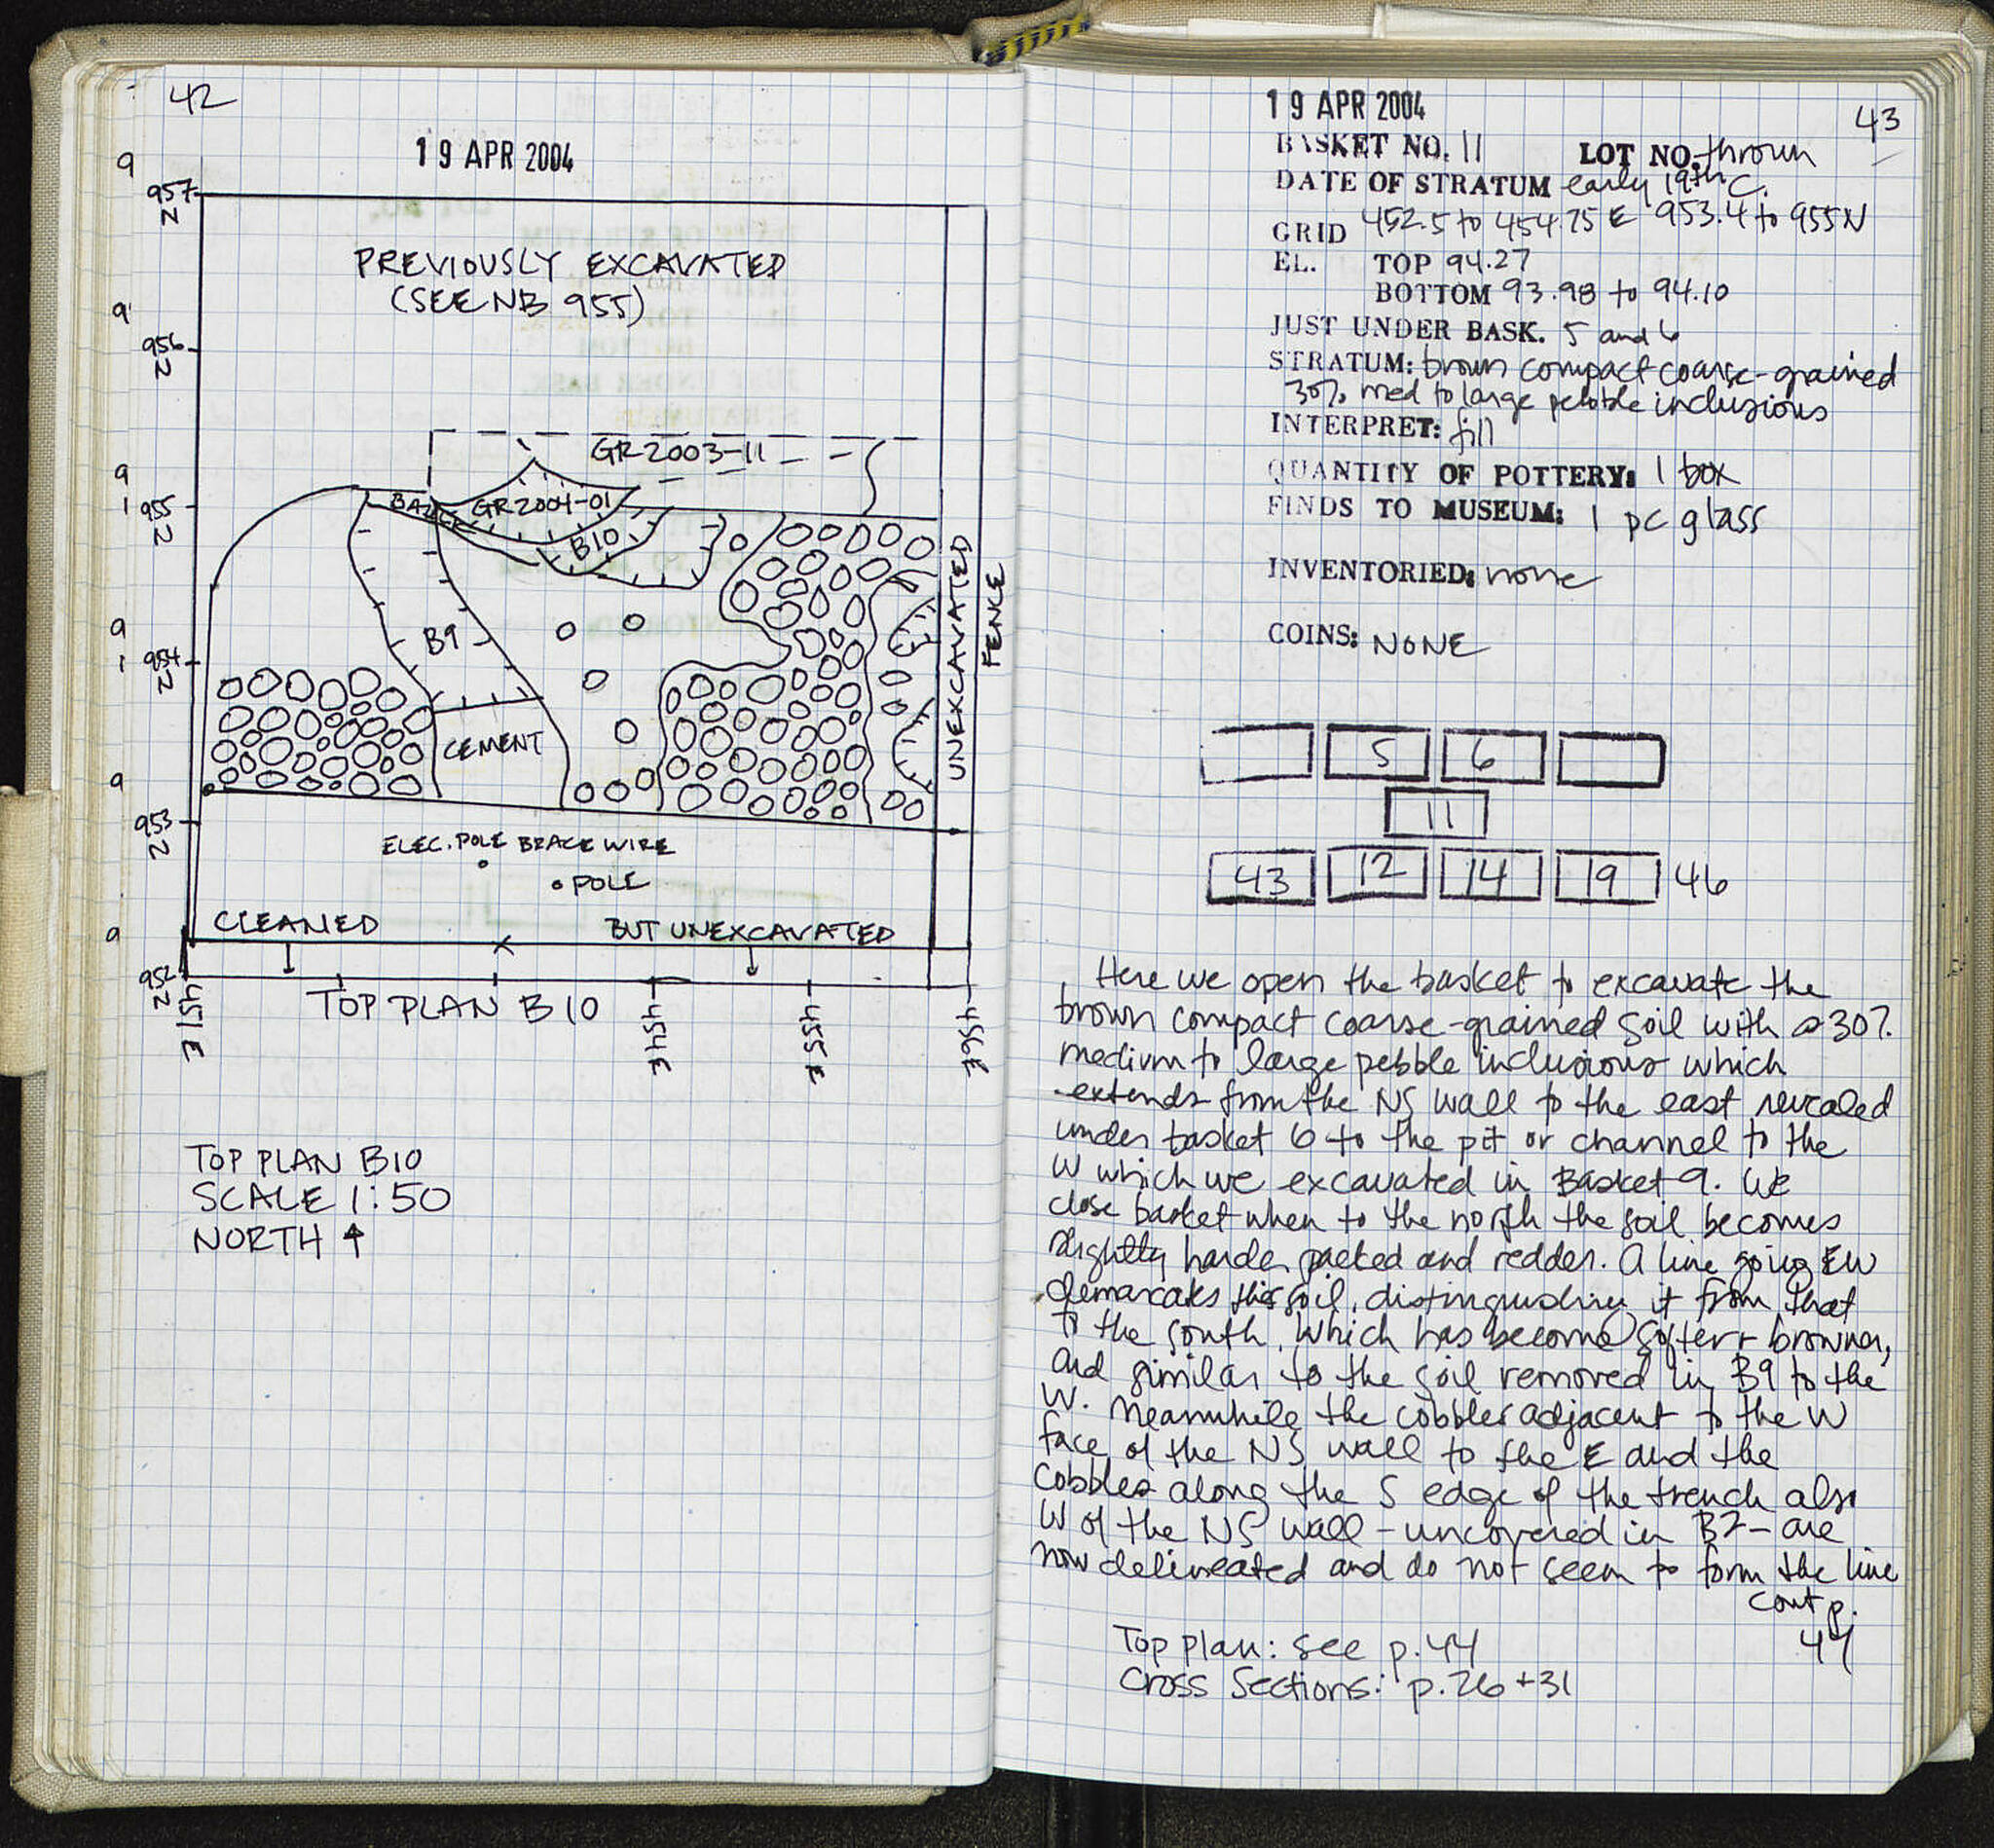 42
19 APR 2004
9
957
N
PREVIOUSLY EXCAVATED
(SEE NB 955)
9
956
N
GR 2003-11
9
1
955
N
GR 2004-01
B10
UNEXCAVATED
FENCE
9
1
954
N
B9
CEMENT
9
953
N
ELEC. POLE BRACE WIRE
POLE
9
CLEANED
BUT UNEXCAVATED
952
N
451E
TOP PLAN B10
454E
455E
456E
TOP PLAN B10
SCALE 1:50
NORTH ↑
19 APR 2004
43
BASKET NO. 11 LOT NO. thrown
DATE OF STRATUM early 19th C.
GRID 452.5 to 454.75 E 953.4 to 955N
EL. TOP 94.27
BOTTOM 93.98 to 94.10
JUST UNDER BASK. 5 and 6
STRATUM: brown compact coarse-grained
30% med to large pebble inclusions
INTERPRET: fill
QUANTITY OF POTTERY: 1 box
FINDS TO MUSEUM: 1 pc glass
INVENTORIED: none
COINS: NONE
5 6
11
43 12 14 19 46
Here we open the basket to excavate the
brown compact coarse-grained soil with 30%
medium to large pebble inclusions which
extends from the NS wall to the east revealed
under basket 6 to the pit or channel to the
W which we excavated in Basket 9. We
close basket when to the north the soil becomes
slightly harder packed and redder. A line going EW
demarcates this soil, distinguishing it from that
to the south, which has become softer + browner,
and similar to the soil removed in B9 to the
W. Meanwhile the cobbles adjacent to the W
face of the NS wall to the E and the
cobbles along the S edge of the trench also
W of the NS wall - uncovered in B2 - are
now delineated and do not seem to form the line
cont p.
44
Top plan: see p. 44
Cross Sections: p. 26 + 31